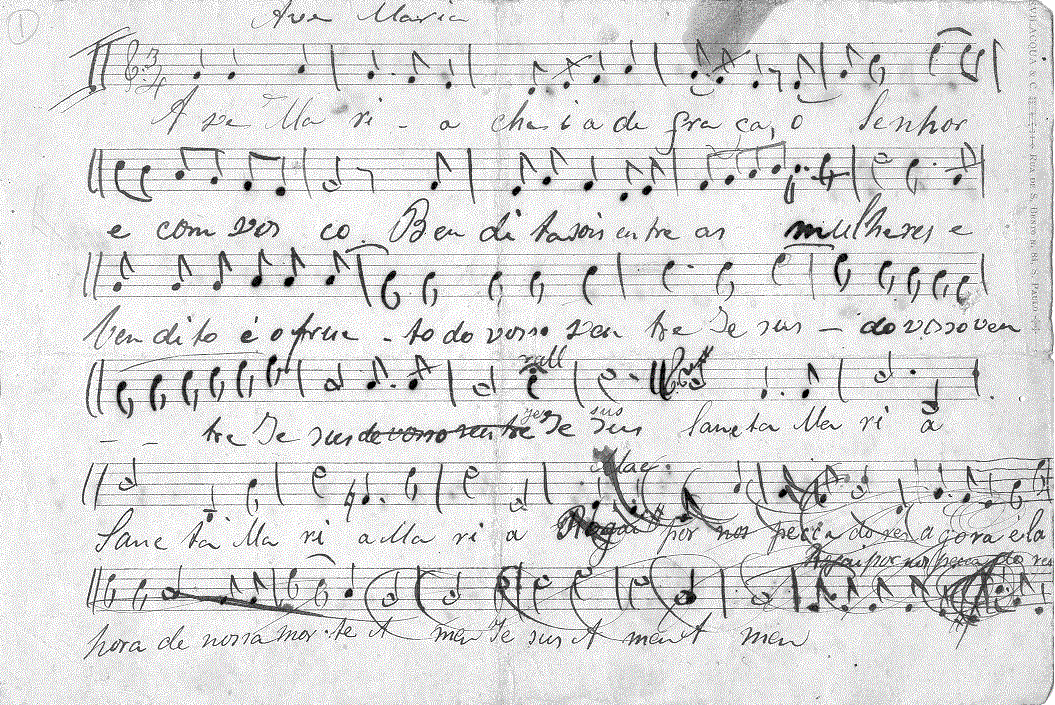 1
Ave Maria
3/4
A ve Ma ri - a che i a de gra ça, o Senhor
e com vos co. Ben di ta sois entre as mulheres e
ben di to é o fru - to do vosso ven tre Je sus - do vosso ven
rall
- - tre Je sus de vosso ven tre Je sus Sancta Ma ri a
Sanc ta Ma ri a Ma ri a Rogai por nos pecca do res a gora e la
Rogai por nos pecca do res
hora de nossa mor-te A men Je sus A men A men